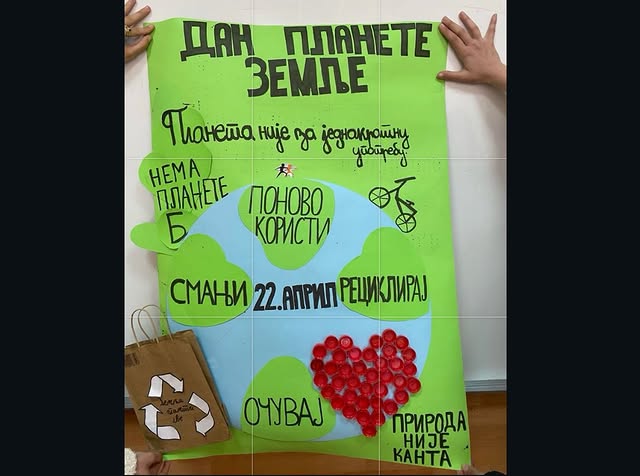 ДАН ПЛАНЕТЕ
ЗЕМЉЕ
Планета није за једнократну
употребу
НЕМА
ПЛАНЕТЕ
Б
ПОНОВО
КОРИСТИ
СМАЊИ
22. АПРИЛ
РЕЦИКЛИРАЈ
ОЧУВАЈ
ПРИРОДА
НИЈЕ
КАНТА
Земља